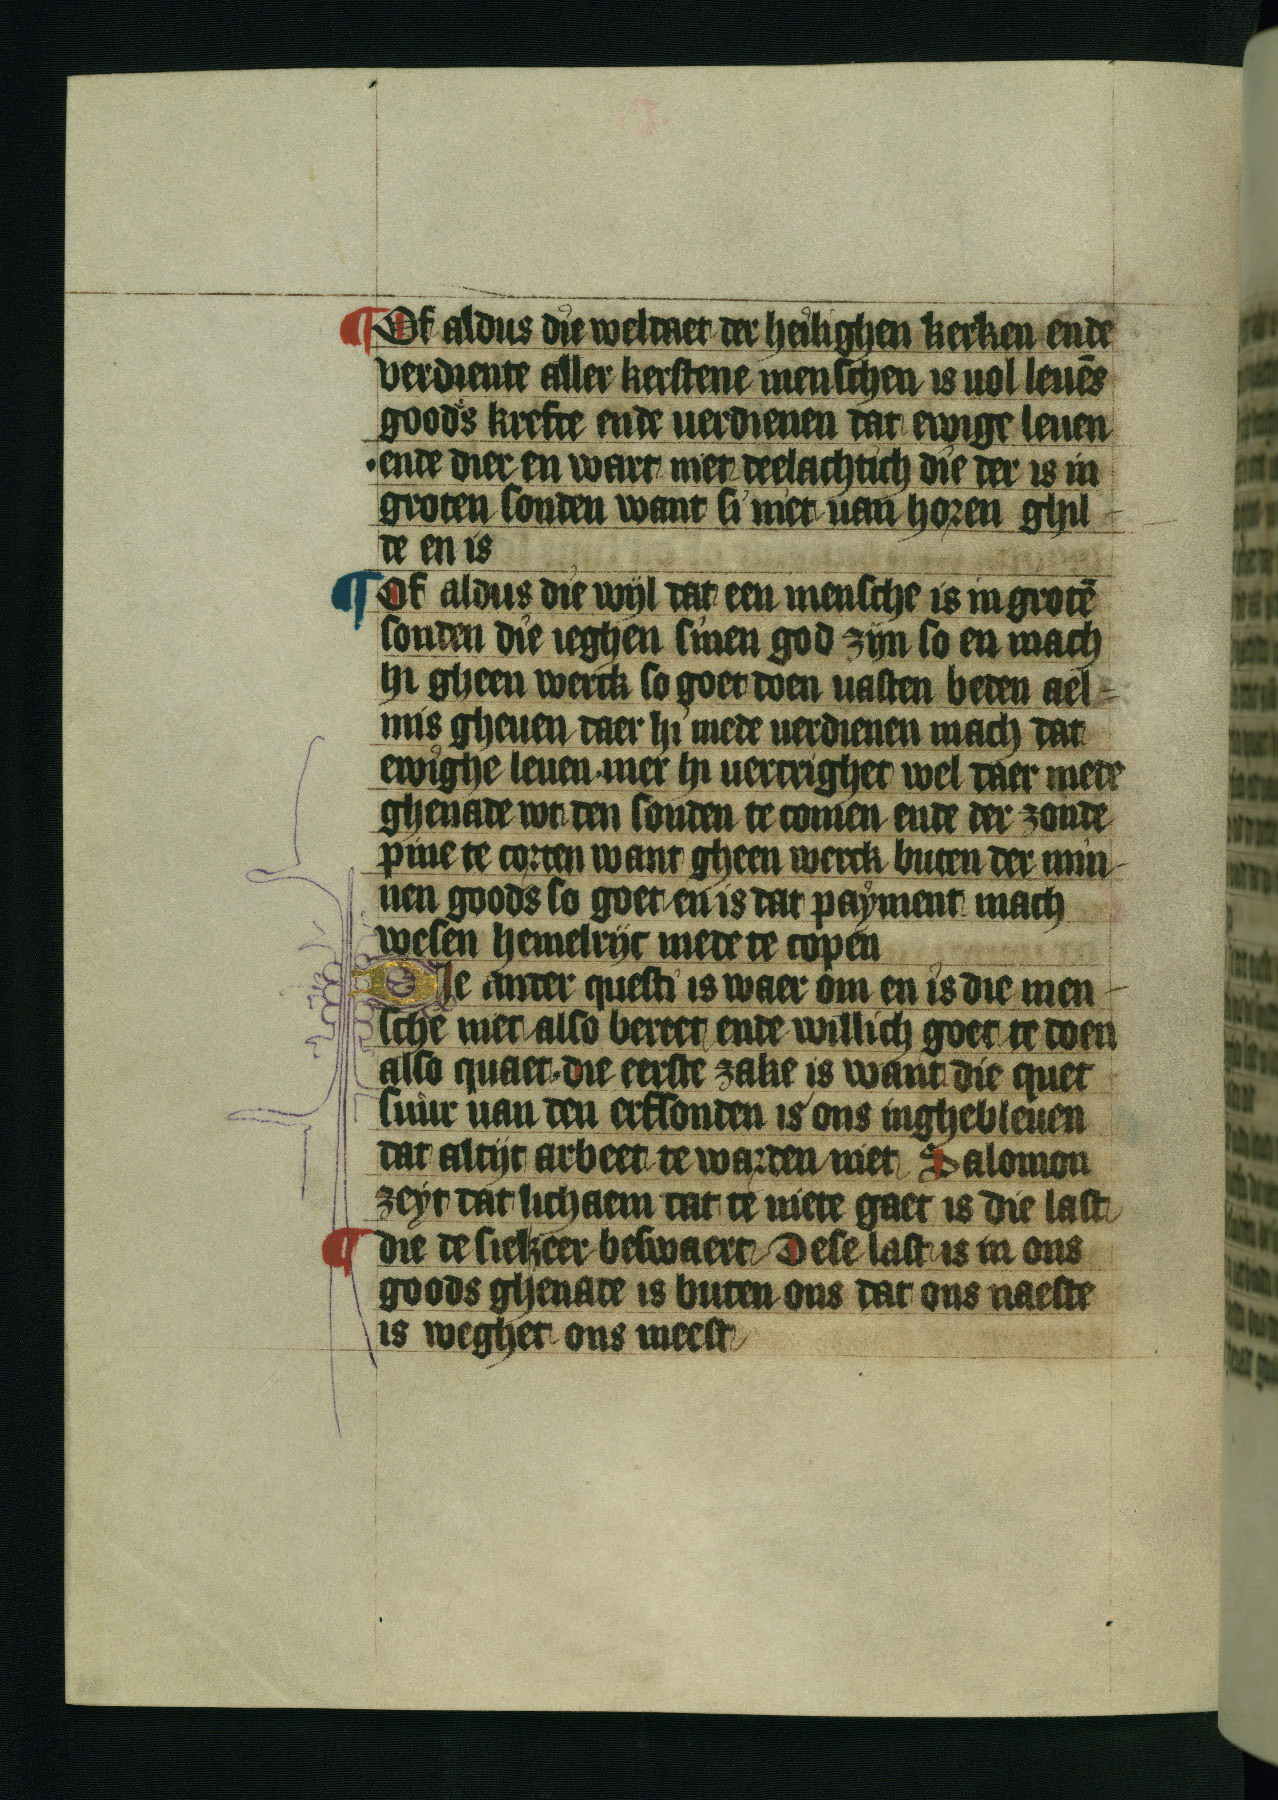 ·I·
¶ Of aldus die weldaet der heilighen kerken ende
verdiente aller kerstene menschen is uol leuēs
goods krefte ende uerdienen dat ewige leuen
·ende dier en wart niet deelachtich die der is in
groten sonden want si niet uan horen ghil
de en is
¶ Of aldus die wijl dat een mensche is in grotē
sonden die ieghen sinen god zijn so en mach
hi gheen werck so goet doen uasten beden ael=
mis gheuen daer hi mede uerdienen mach dat
ewighe leuen·mer hi uercrighet wel daer mede
ghenade wt den sonden te comen ende der zonde
pine te corten want gheen werck buten der min
nen goods so goet en is dat payment mach
wesen hemelrijc mede te copen
Die ander questi is waer om en is die men
sche niet also bereet ende willich goet te doen
also quaet·die eerste zake is want die quet
suur uan den erfsonden is ons inghebleuen
dat altijt arbeet te warden niet Salomon
zeyt dat lichaem dat te niete gaet is die last
¶ die de siel zeer beswaert Dese last is in ons
goods ghenade is buten ons dat ons naeste
is weghet ons meest